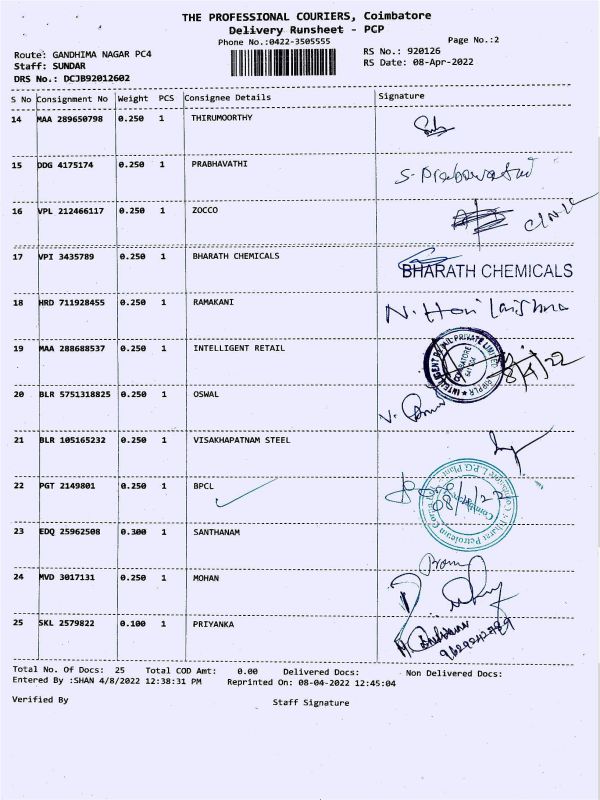 THE PROFESSIONAL COURIERS, Coimbatore
Delivery Runsheet - PCP
Phone No.:0422-3505555 Page No.:2
Route: GANDHIMA NAGAR PC4 RS No.: 920126
Staff: SUNDAR RS Date: 08-Apr-2022
DRS No.: DCJB92012602
S No Consignment No Weight PCS Consignee Details Signature
14 MAA 289650798 0.250 1 THIRUMOORTHY
15 DDG 4175174 0.250 1 PRABHAVATHI
16 VPL 212466117 0.250 1 ZOCCO CLINIC
17 VPI 3435789 0.250 1 BHARATH CHEMICALS
BHARATH CHEMICALS
18 HRD 711928455 0.250 1 RAMAKANI
19 MAA 288688537 0.250 1 INTELLIGENT RETAIL
INTELLIGENT RETAIL PRIVATE LIMITED
8/4/22
20 BLR 5751318825 0.250 1 OSWAL
21 BLR 105165232 0.250 1 VISAKHAPATNAM STEEL
22 PGT 2149801 0.250 1 BPCL
23 EDQ 25962508 0.300 1 SANTHANAM
24 MVD 3017131 0.250 1 MOHAN
25 SKL 2579822 0.100 1 PRIYANKA
Total No. Of Docs: 25 Total COD Amt: 0.00 Delivered Docs: Non Delivered Docs:
Entered By :SHAN 4/8/2022 12:38:31 PM Reprinted On: 08-04-2022 12:45:04
Verified By Staff Signature